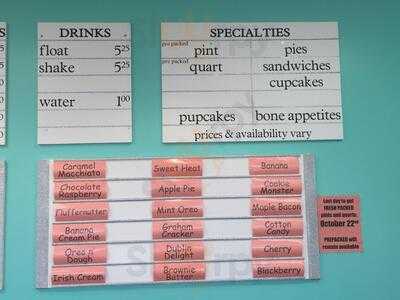 DRINKS
float 5²⁵
shake 5²⁵
water 1⁰⁰
SPECIALTIES
pre packed
pint pies
pre packed
quart sandwiches
cupcakes
pupcakes bone appetites
prices & availability vary
Caramel
Macchiato
Sweet Heat
Banana
Chocolate
Raspberry
Apple Pie
Cookie
Monster
Fluffernutter
Mint Oreo
Maple Bacon
Banana
Cream Pie
Graham
Cracker
Cotton
Candy
Oreo n
Dough
Dublin
Delight
Cherry
Irish Cream
Brownie
Batter
Blackberry
Last day to get
FRESH PACKED
pints and quarts:
October 22ⁿᵈ
PREPACKED will
remain available